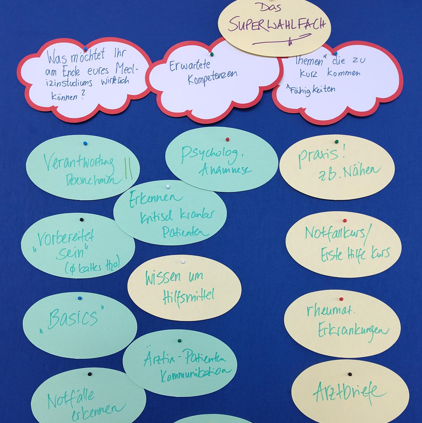 Das
SUPERWAHLFACH
Was möchtet Ihr
am Ende eures Med-
izinstudiums wirklich
können?
Erwartete
Kompetenzen
Themen* die zu
kurz kommen
*Fähigkeiten
Verantwortung
Psycholog.
Anamnese
praxis!
z.b. Nähen
Erkennen
kritisch kranker
Patienten
"Vorbereitet
sein"
Notfallkurs/
Erste Hilfe Kurs
Wissen um
Hilfsmittel
"Basics"
rheumat.
Erkrankungen
Ärztin-Patienten
Kommunikation
Notfälle
erkennen
Arztbriefe